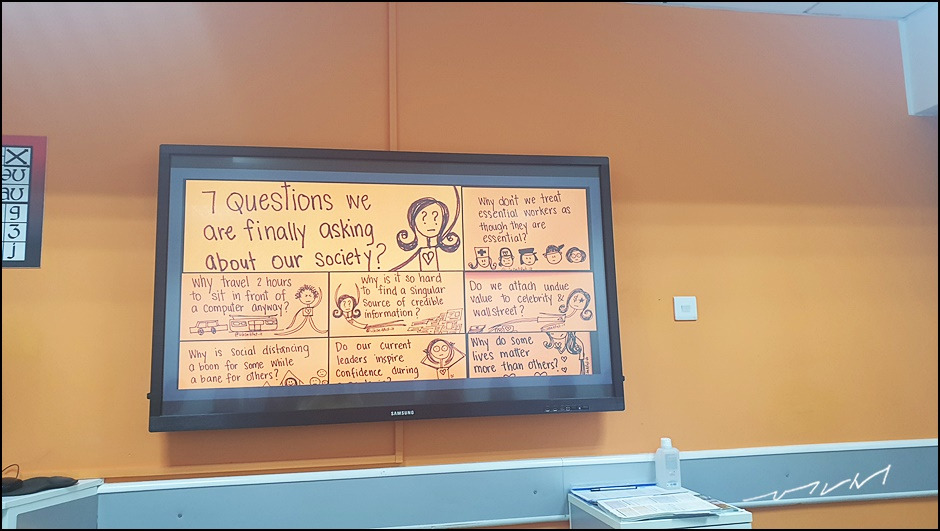 7 Questions we
are finally asking
about our society?
Why don't we treat
essential workers as
though they are
essential?
Why travel 2 hours
to sit in front of
a computer anyway?
Why is it so hard
to find a singular
source of credible
information?
Do we attach undue
value to celebrity &
wall street?
Why is social distancing
a boon for some while
a bane for others?
Do our current
leaders inspire
confidence during
Why do some
lives matter
more than others?
SAMSUNG
X
əʊ
aʊ
g
ʒ
j